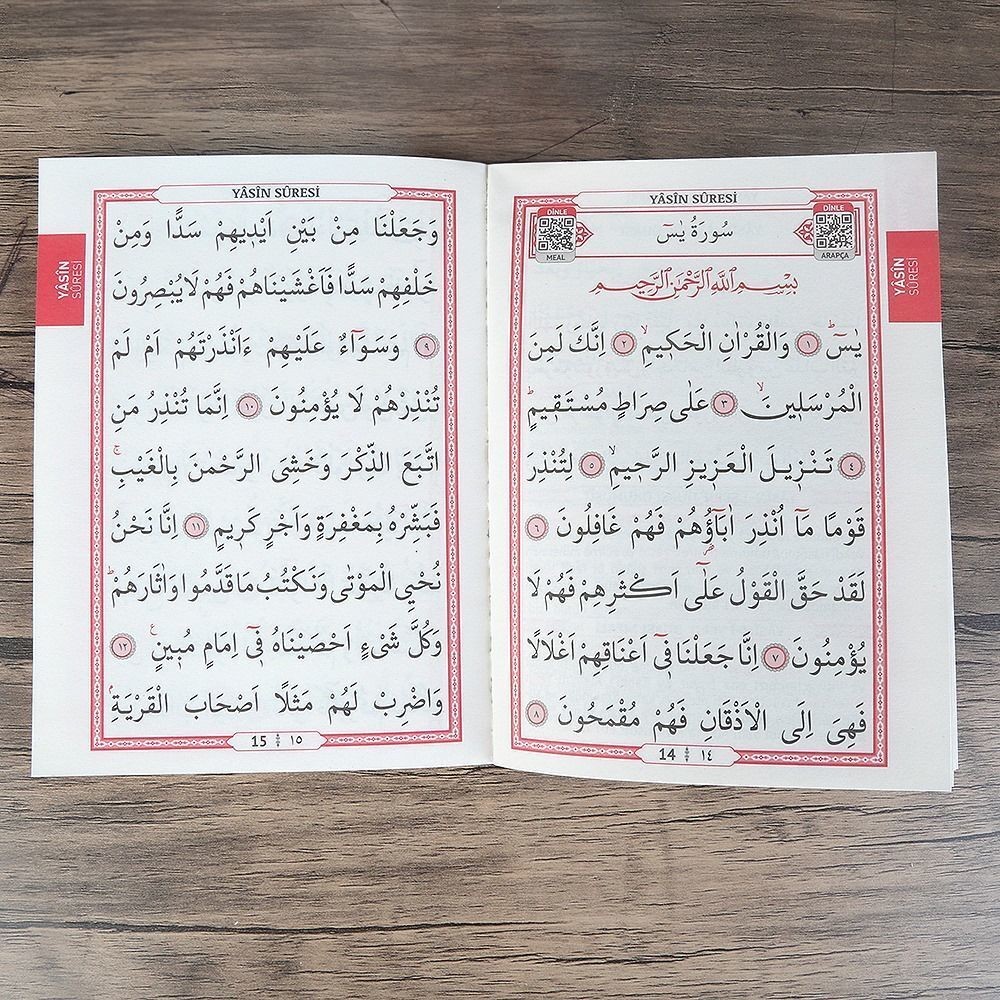 YÂSÎN SÛRESİ
DİNLE
DİNLE
سُورَةُ يٰسٓ
MEAL
ARAPÇA
بِسْمِ اللّٰهِ الرَّحْمٰنِ الرَّحِيمِ
يٰسٓۜ ﴿١﴾ وَالْقُرْاٰنِ الْحَكِيمِۙ ﴿٢﴾ اِنَّكَ لَمِنَ
الْمُرْسَلِينَۙ ﴿٣﴾ عَلٰى صِرَاطٍ مُسْتَقِيمٍۜ
﴿٤﴾ تَنْزِيلَ الْعَزِيزِ الرَّحِيمِۙ ﴿٥﴾ لِتُنْذِرَ
قَوْمًا مَٓا اُنْذِرَ اٰبَٓاؤُ۬هُمْ فَهُمْ غَافِلُونَ ﴿٦﴾
لَقَدْ حَقَّ الْقَوْلُ عَلٰٓى اَكْثَرِهِمْ فَهُمْ لَا
يُؤْمِنُونَ ﴿٧﴾ اِنَّا جَعَلْنَا فِٓي اَعْنَاقِهِمْ اَغْلَالًا
فَهِيَ اِلَى الْاَذْقَانِ فَهُمْ مُقْمَحُونَ ﴿٨﴾
14 ١٤
YÂSÎN
SÛRESİ
YÂSÎN SÛRESİ
وَجَعَلْنَا مِنْ بَيْنِ اَيْدِيهِمْ سَدًّا وَمِنْ
خَلْفِهِمْ سَدًّا فَاَغْشَيْنَاهُمْ فَهُمْ لَا يُبْصِرُونَ
﴿٩﴾ وَسَوَٓاءٌ عَلَيْهِمْ ءَاَنْذَرْتَهُمْ اَمْ لَمْ
تُنْذِرْهُمْ لَا يُؤْمِنُونَ ﴿١٠﴾ اِنَّمَا تُنْذِرُ مَنِ
اتَّبَعَ الذِّكْرَ وَخَشِيَ الرَّحْمٰنَ بِالْغَيْبِۚ
فَبَشِّرْهُ بِمَغْفِرَةٍ وَاَجْرٍ كَرِيمٍ ﴿١١﴾ اِنَّا نَحْنُ
نُحْيِ الْمَوْتٰى وَنَكْتُبُ مَا قَدَّمُوا وَاٰثَارَهُمْۜ
وَكُلَّ شَيْءٍ اَحْصَيْنَاهُ فِٓي اِمَامٍ مُبِينٍ۟ ﴿١٢﴾
وَاضْرِبْ لَهُمْ مَثَلًا اَصْحَابَ الْقَرْيَةِۢ
15 ١٥
YÂSÎN
SÛRESİ